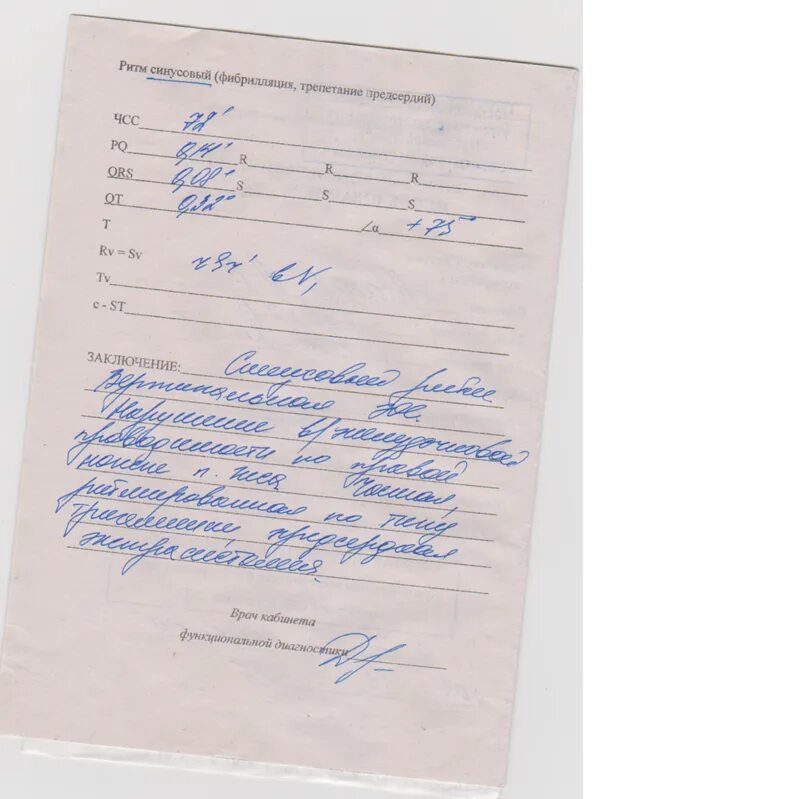 Ритм синусовый (фибрилляция, трепетание предсердий)
ЧСС 72'
PQ 0,14" R R R
QRS 0,08" S S S
QT 0,32" ∠α +75°
T
Rv = Sv rSr' в V₁
Tv
с - ST
ЗАКЛЮЧЕНИЕ: Синусовый ритм.
Вертикальная ЭОС.
Нарушение в/желудочковой
проводимости по правой
ножке п. Гиса. Частая
ритмированная по типу
тригеминии предсердная
экстрасистолия.
Врач кабинета
функциональной диагностики